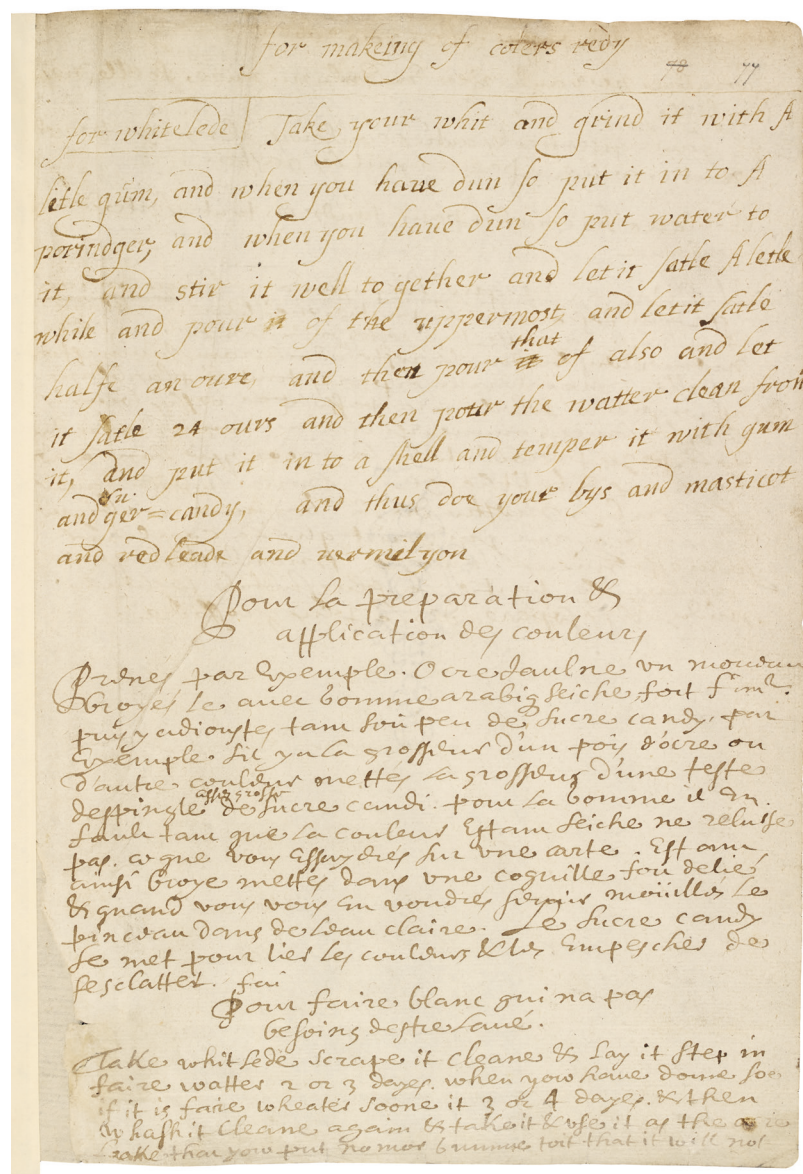 for makeing of colers redy
78 77
for white lede Take your whit and grind it with A
letle gum, and when you haue dun so put it in to A
porindger, and when you haue dun so put water to
it, and stir it well to gether and let it satle A letle
while and pour it of the uppermost, and let it satle
halfe an oure, and then pour that of also and let
it satle 24 ours and then pour the watter clean from
it, and put it in to a shell and temper it with gum
and suger=candy, and thus doe your bys and masticot
and red leade and vermelyon
Pour la preparation &
application des couleurs
Prenes par Exemple. Ocre Jaulne un morceau
broyés le avec Gomme arabiq seiche fort
puis y adioustes tant soi peu de sucre candy. par
Exemple sil y a la grosseur d'un pois d'ocre ou
d'autre couleur mettes la grosseur d'une teste
despingle assez grosse de sucre candi. pour la Gomme il En
fault tant que la couleur Estant seiche ne reluise
pas. ce que vous Essayerés sur une carte. Estant
ainsi broyé mettés dans une coquille
& quand vous vous En voudrés servir mouillés le
pinceau dans de leau claire. Le sucre candy
se met pour lier les couleurs & les Empescher de
sesclatter.
Pour faire blanc qui na pas
besoing destre Lavé.
Take whit Lede scrape it Cleane & Lay it step in
faire watter 2 or 3 dayes. when yow haue done soe
if it is faire wheater soone it 3 or 4 dayes. & then
whash it Cleane again & take it & use it as the
take that yow put no mor Gumme toit that it will not